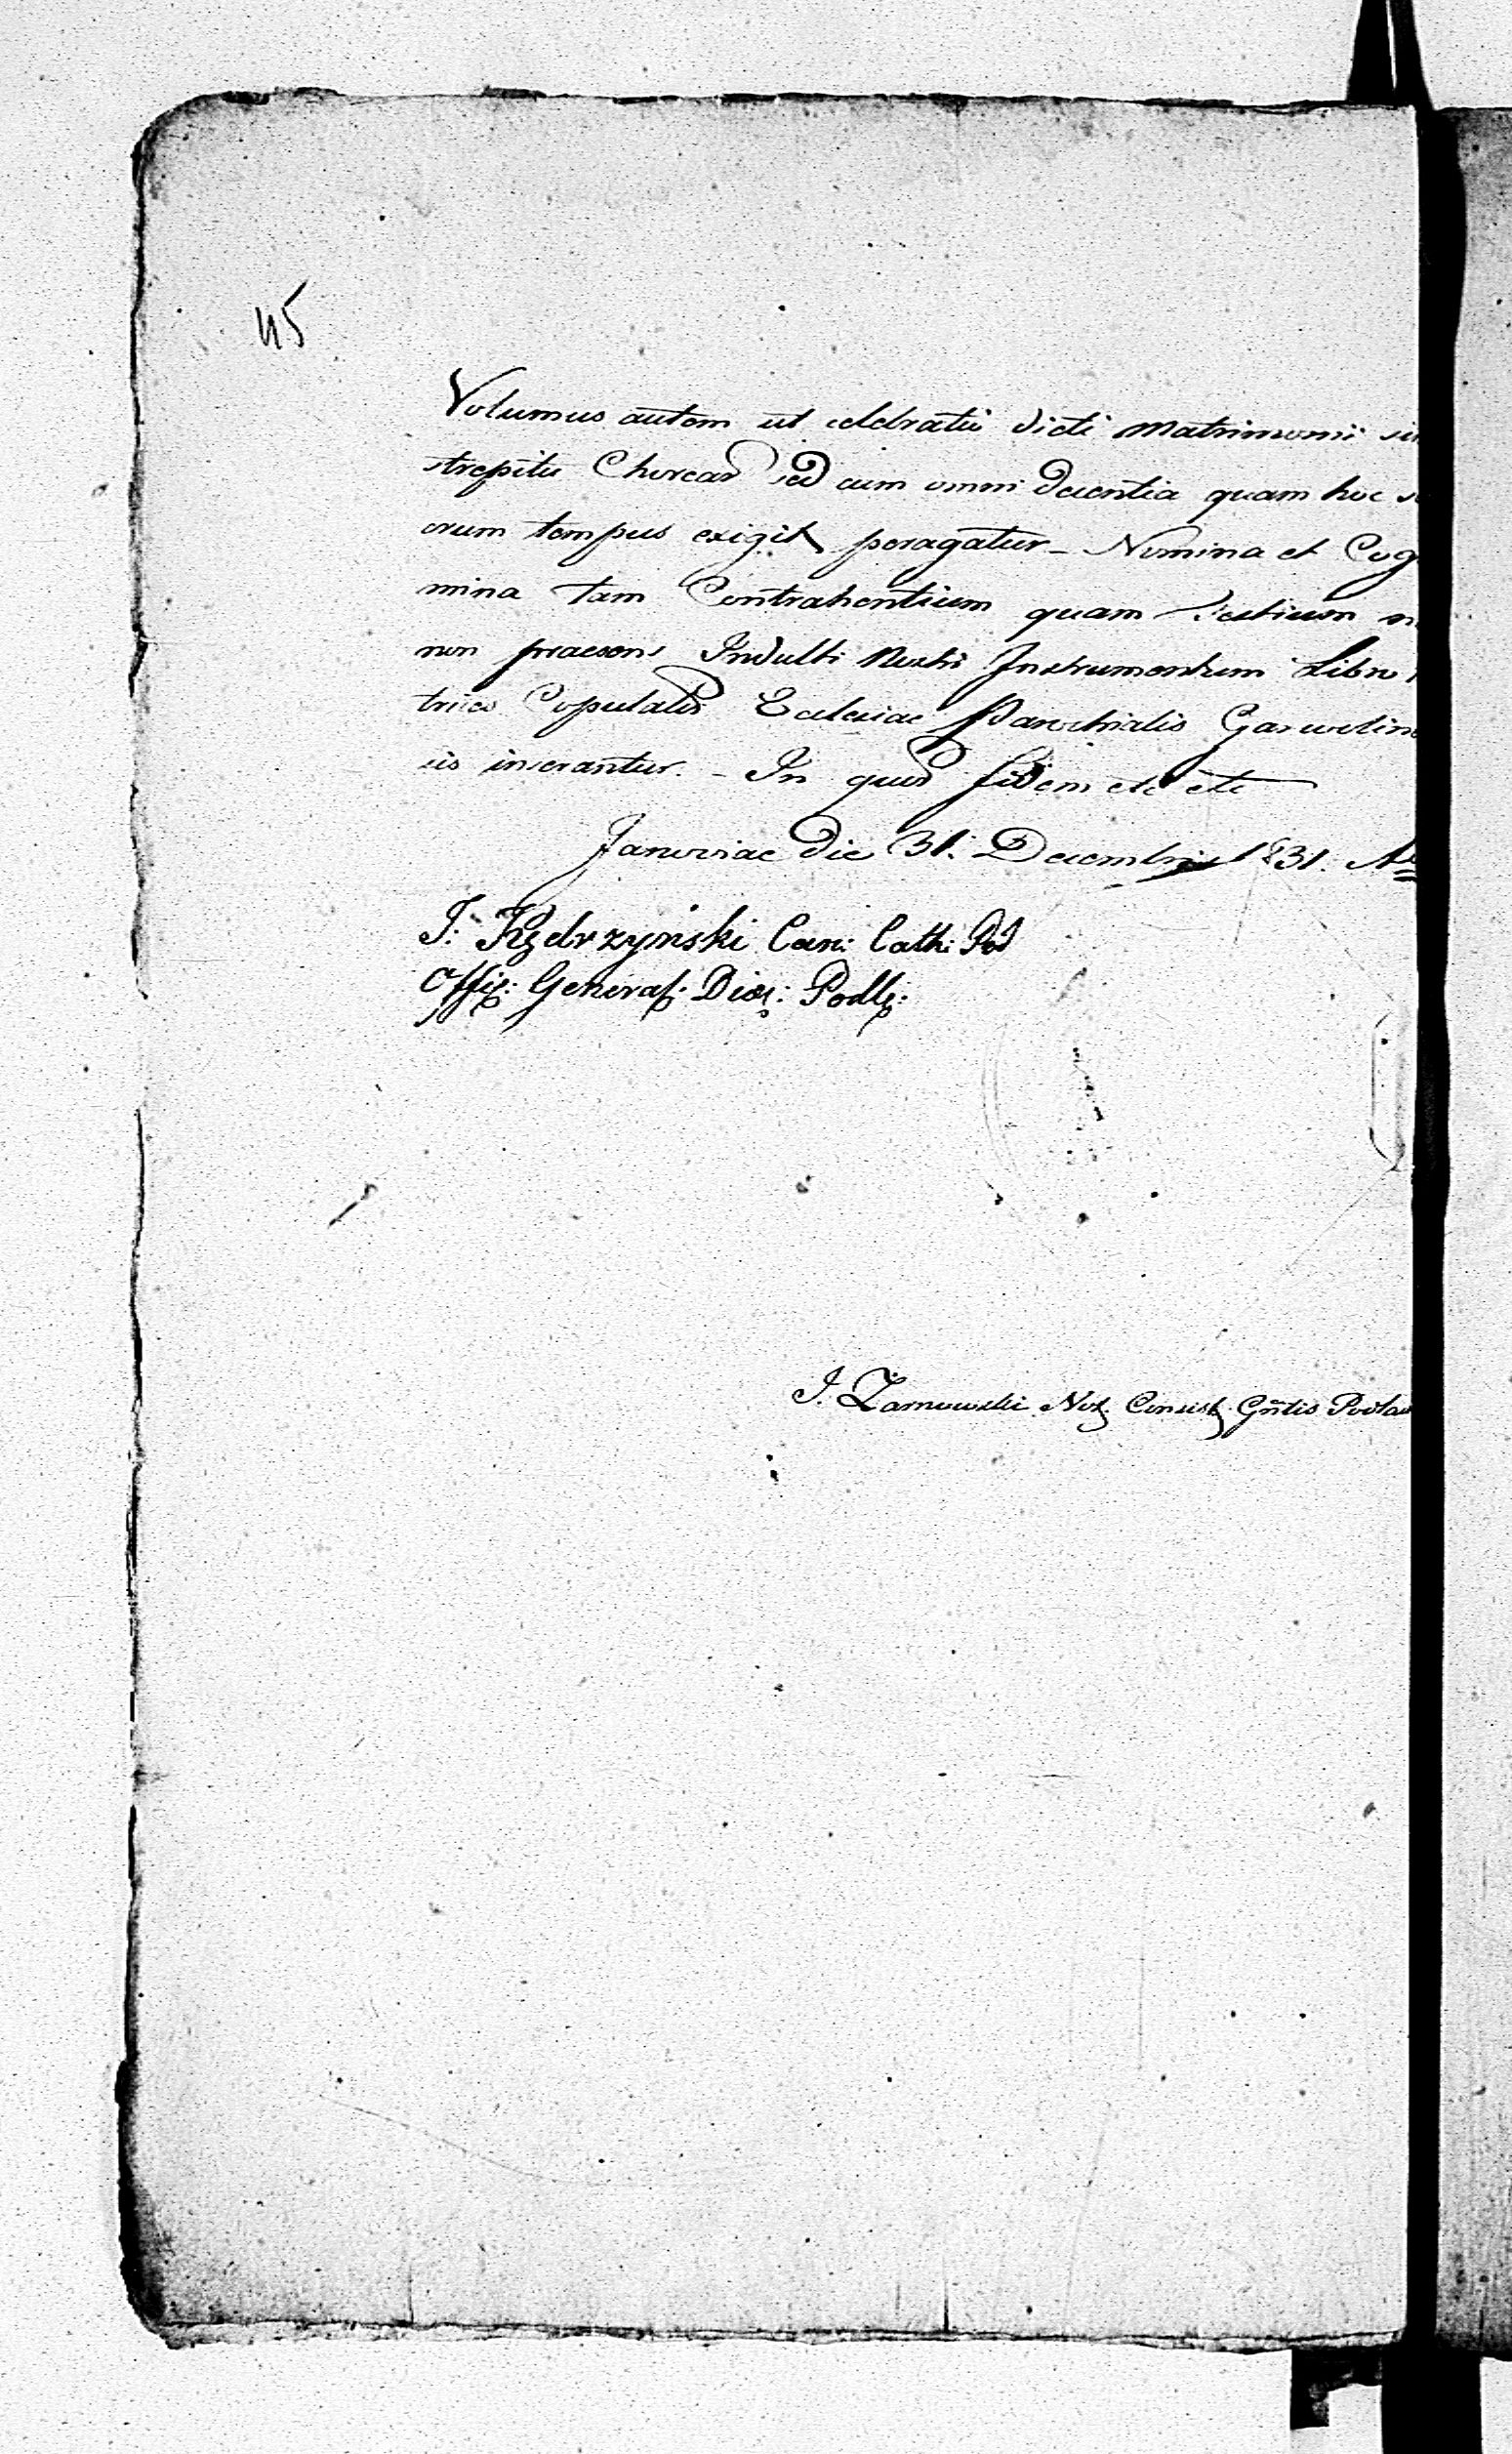 45
Volumus autem ut celebratio dicti Matrimonii
strepitu Chorear sed cum omni decentia quam hoc
orum tempus exigit peragatur - Nomina et Cog
mina tam Contrahentium quam Testium
non praesens Indulti Nostri Instrumentum Libro
trices Copulator Ecclesiae Parochialis Garwolin
sis inserantur. - In quor fidem etc etc
Janoviae die 31. Decembris 1831.
J: Kędrzyński Can: Cath: Pod
Offic: General: Dioe: Podl:
J. Żarnowski Not. Consist. Gnlis Podla